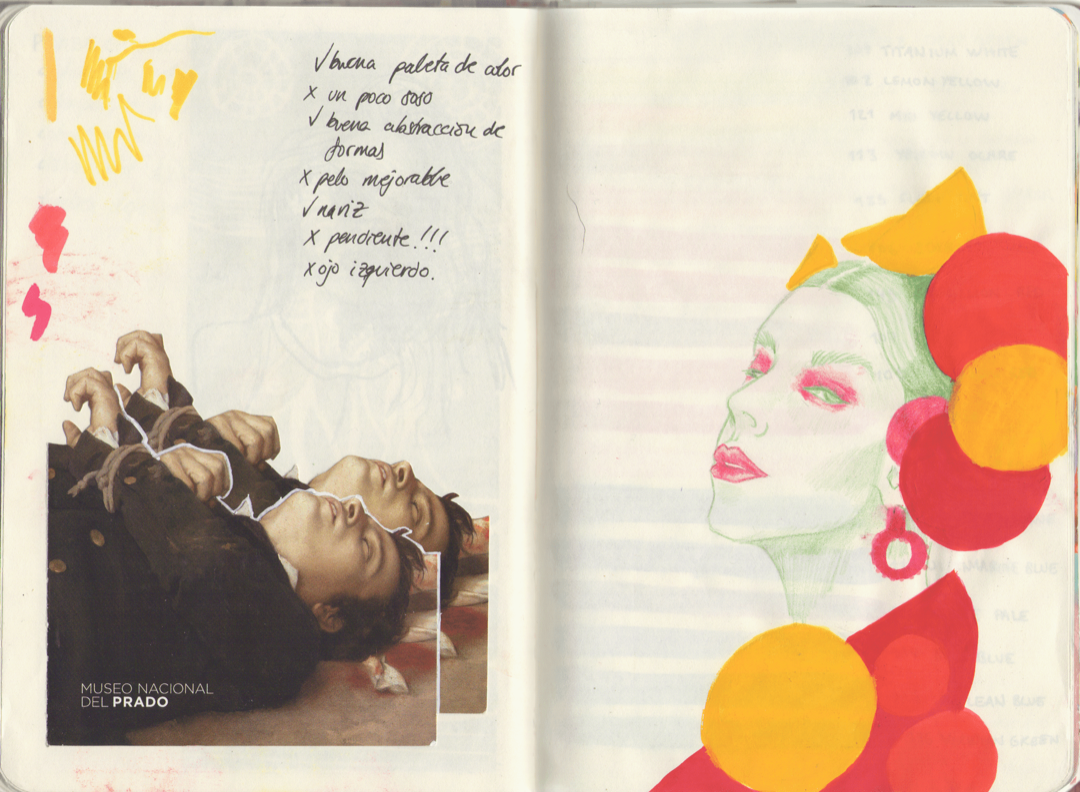 ✓ buena paleta de color
x un poco soso
✓ buena abstracción de
formas
x pelo mejorable
✓ nariz
x pendiente!!!
x ojo izquierdo.
MUSEO NACIONAL
DEL PRADO
TITANIUM WHITE
LEMON YELLOW
YELLOW
PALE
BLUE
BLUE
GREEN